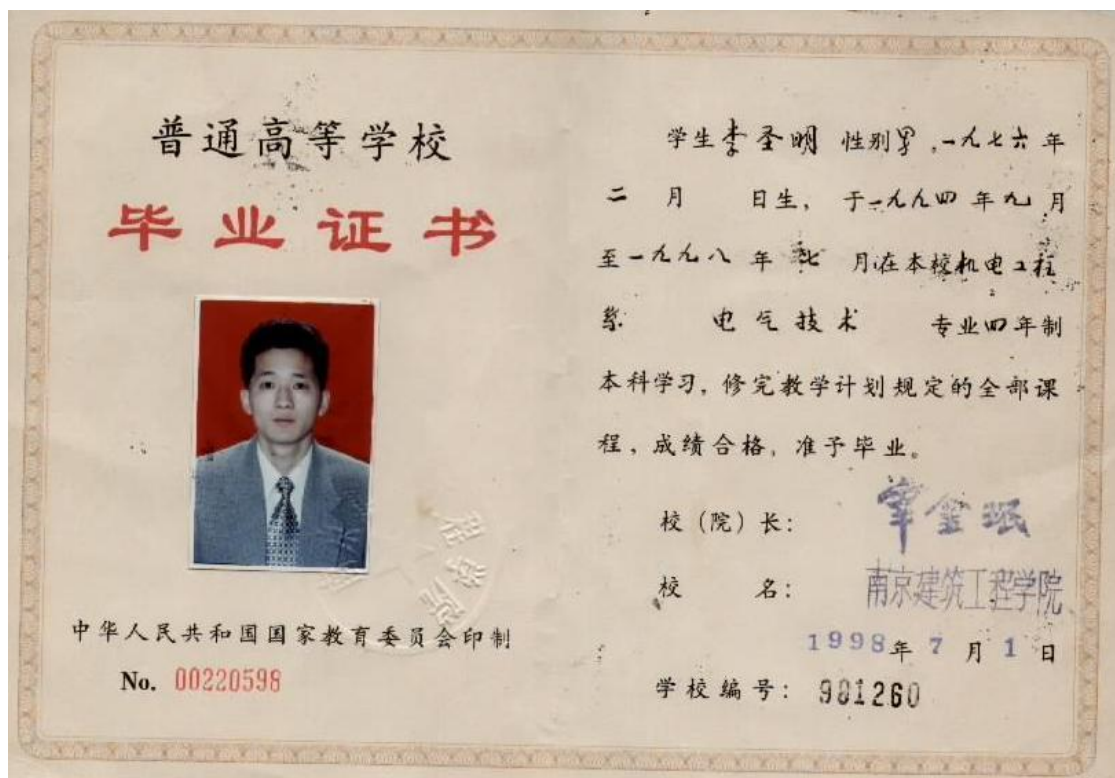 普通高等学校
毕业证书
中华人民共和国国家教育委员会印制
No. 00220598
学生李圣明 性别男，一九七六年
二月 日生，于一九九四年九月
至一九九八年七月在本校机电工程
系 电气技术 专业四年制
本科学习，修完教学计划规定的全部课
程，成绩合格，准予毕业。
校（院）长：
校 名：南京建筑工程学院
1998年7月1日
学校编号：981260